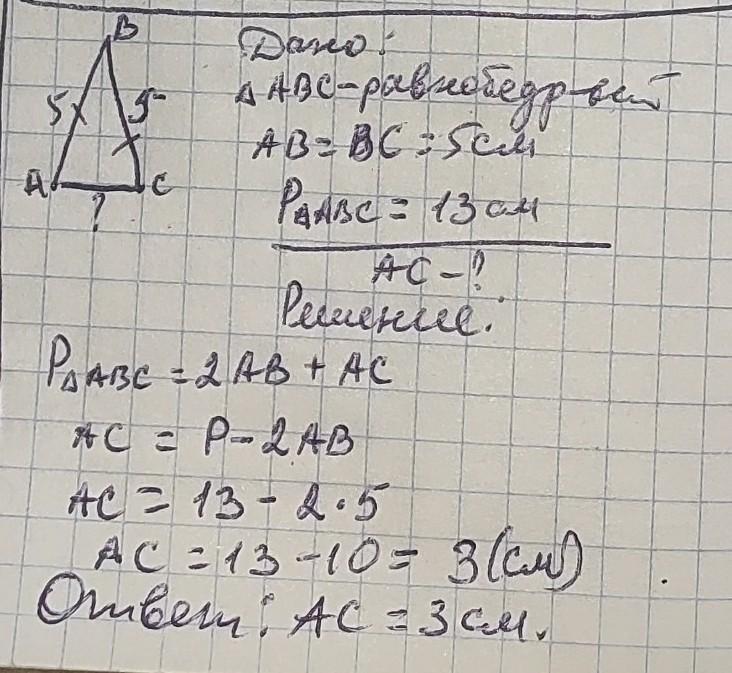 B
5 5
A C
?
Дано:
△ABC-равнобедр-ый
AB = BC = 5см
P△ABC = 13 см
AC - ?
Решение:
P△ABC = 2AB + AC
AC = P - 2AB
AC = 13 - 2·5
AC = 13 - 10 = 3(см)
Ответ: AC = 3 см.